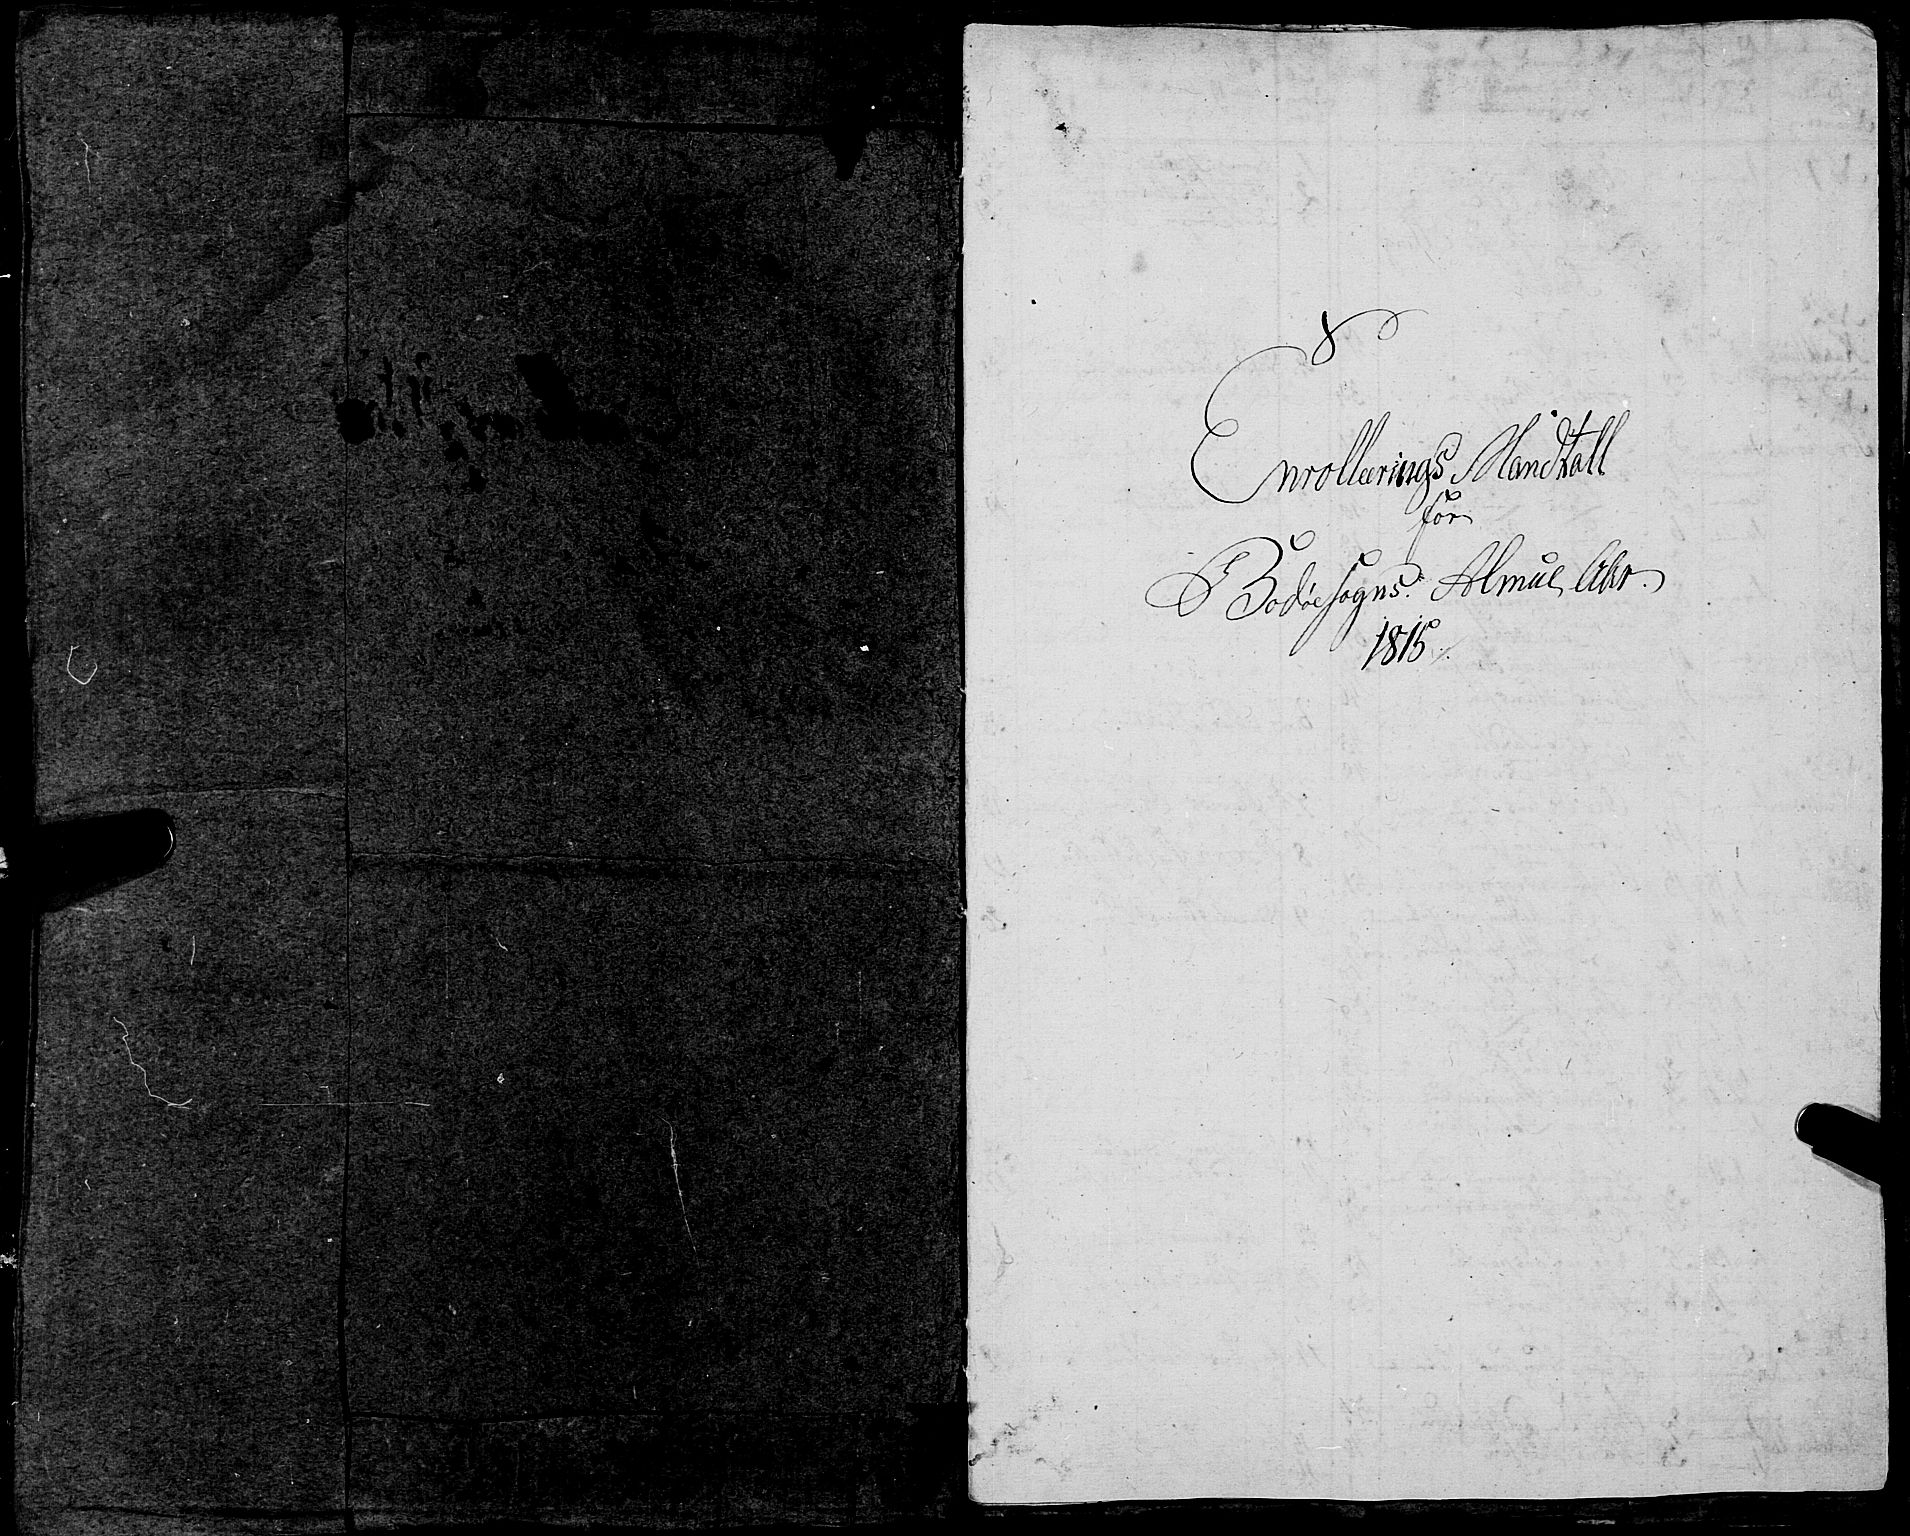 Enrollerings Mandtall
for
Bodøe sogns Almue
1815